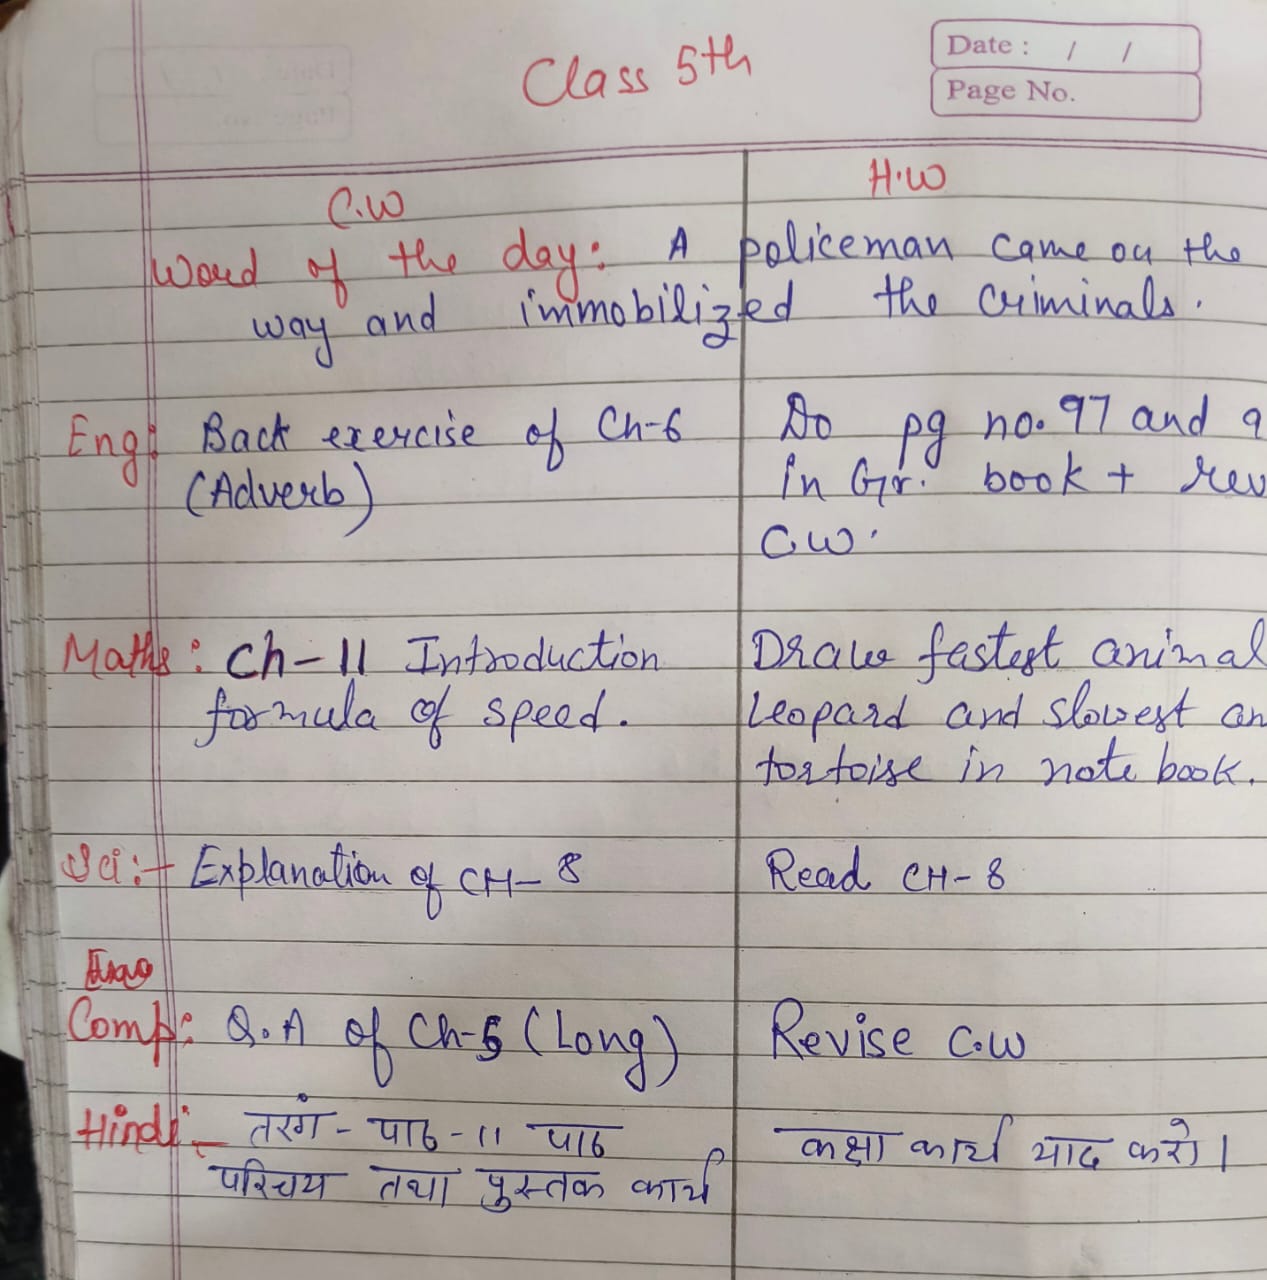 Class 5th
Date : / /
Page No.
C.W
H.W
Word of the day: A policeman came on the
way and immobilized the criminals.
Eng: Back exercise of Ch-6
(Adverb)
Do pg no. 97 and
in Gr. book +
C.W.
Maths: Ch-11 Introduction
formula of speed.
Draw fastest animal
Leopard and slowest
tortoise in note book.
Sci:- Explanation of CH-8
Read CH-8
Comp: Q.A of Ch-5 (Long)
Revise C.W
Hindi:- तरंग - पाठ - 11 पाठ
परिचय तथा पुस्तक कार्य
कक्षा कार्य याद करो।